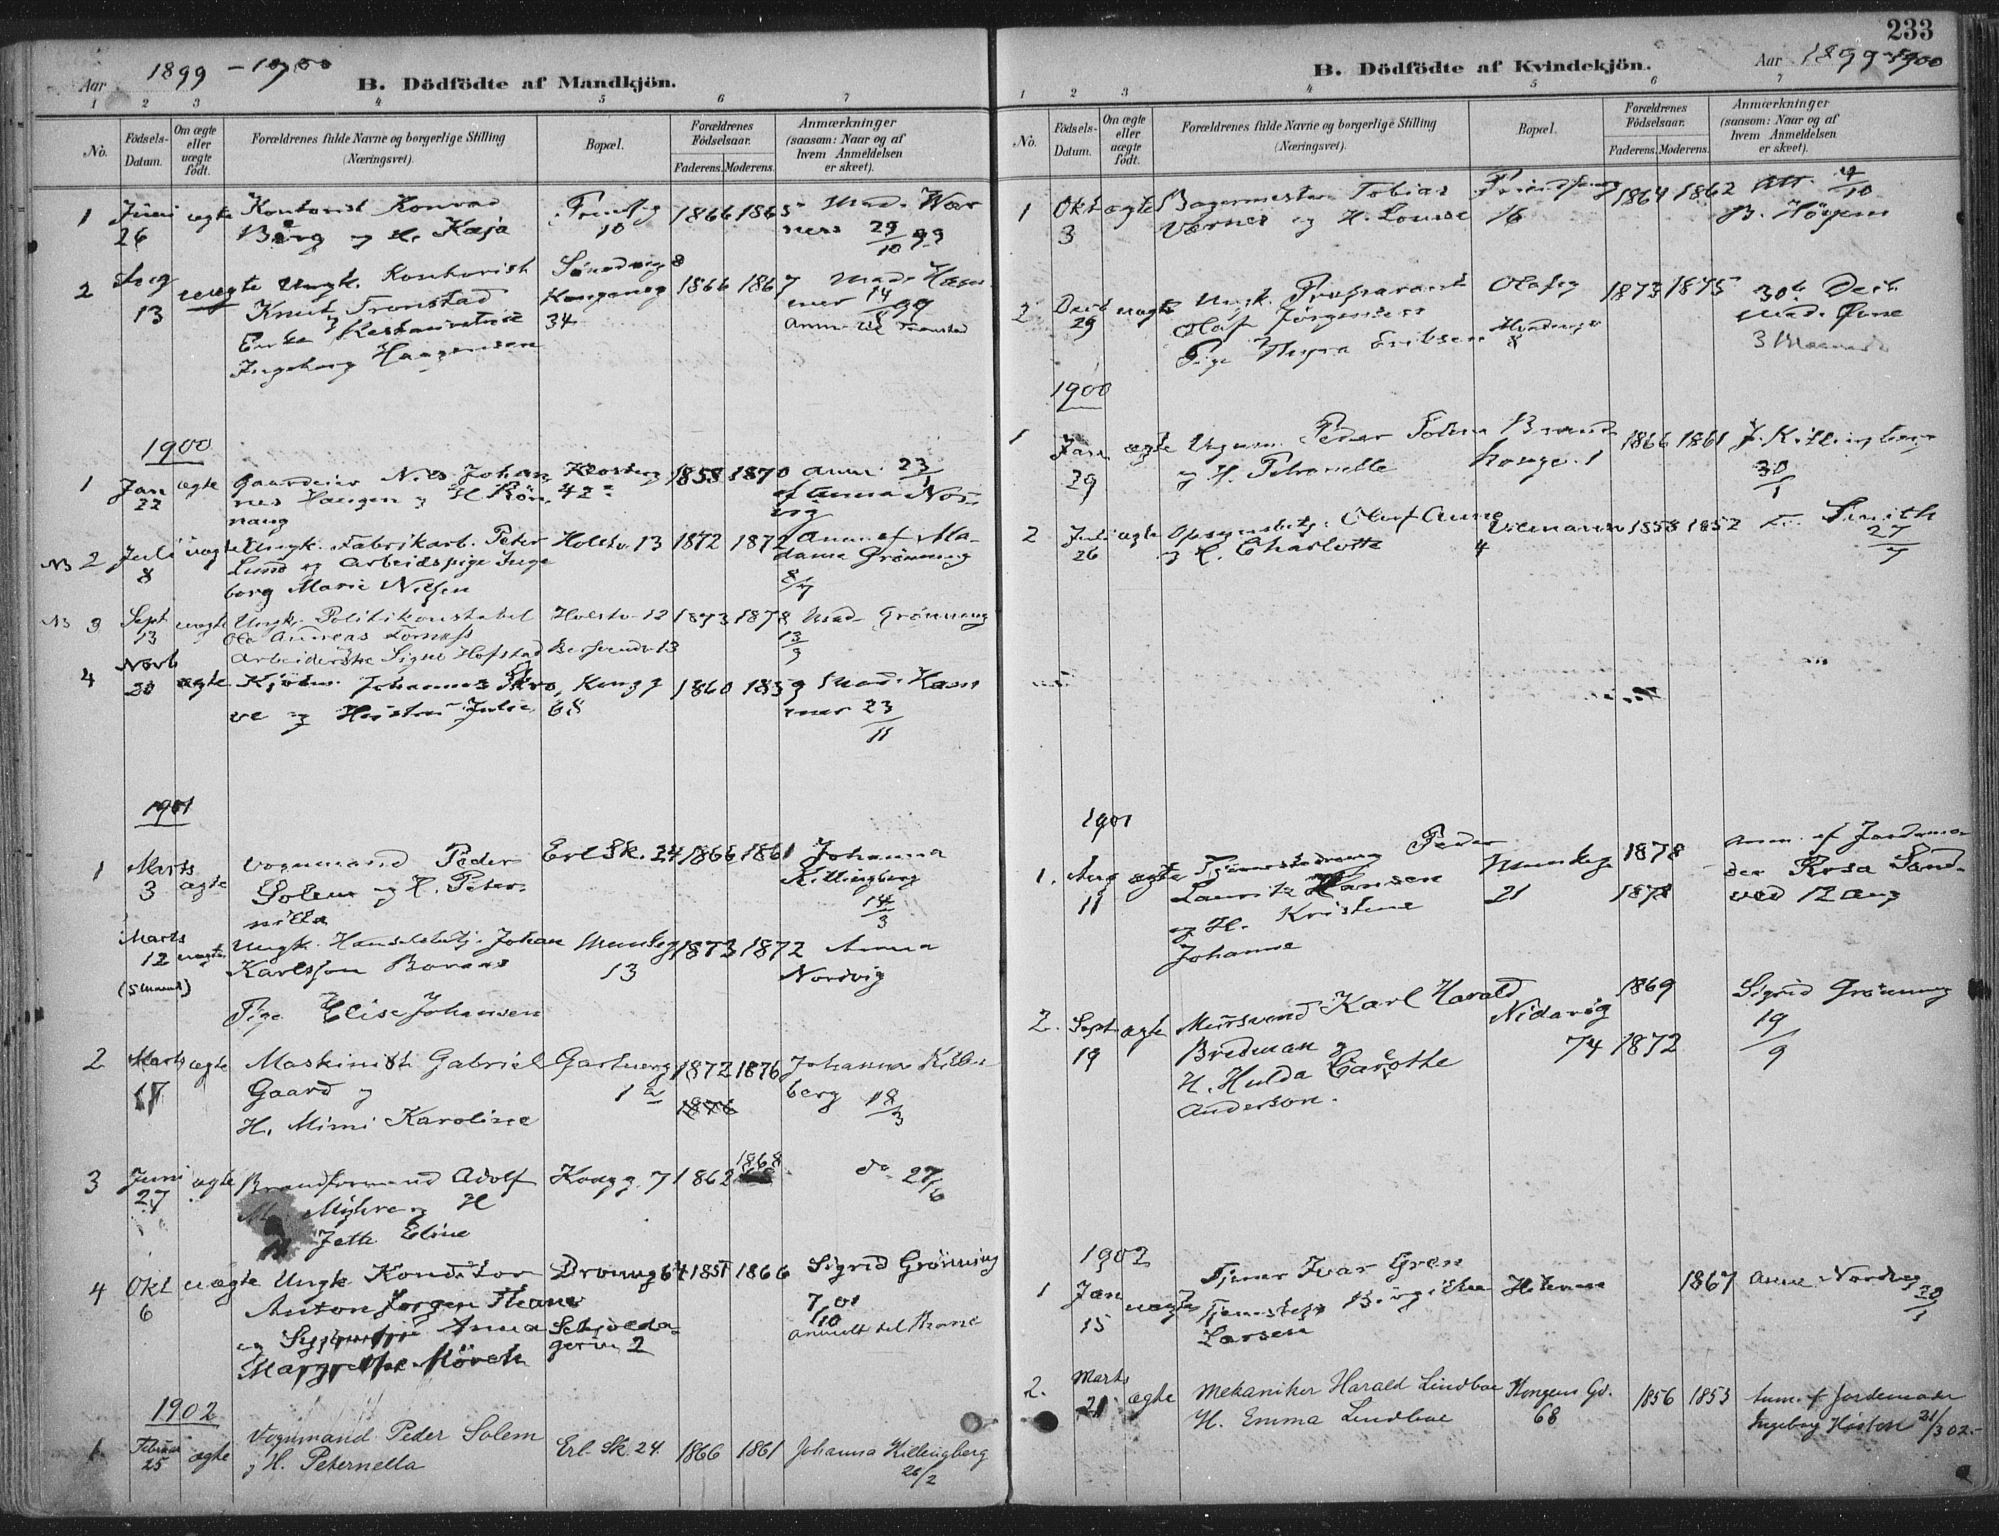 233
Aar 1899 - 1900
B. Dödfödte af Mandkjön.
1 2 3 4 5 6 7
No.
Födsels-Datum.
Om ægte eller uægte födt.
Forældrenes fulde Navne og borgerlige Stilling (Næringsvei).
Bopæl.
Forældrenes Födselsaar.
Faderens. Moderens.
Anmærkninger (saasom: Naar og af hvem Anmeldelsen er skeet).
1 Juni ægte Kontorist Konrad 1866 1865 Mad. Wær
26 Berg og H. Kaja 10 ners 29/10 99
2 Aug uægte Ungk. Kontorist 1866 1867 Mad.
13 Knut Tronstad 99
Enke Restauratrice 34 Anm. til Tronstad
Ingeborg Haagensen
1900
1 Jan ægte Gaardeier Nils Johan 1858 1870 Anm. 23/1
22 nes Haugen og H. Rön 42 af Anna Nor-
naug vig
NB 2 Juli uægte Ungk. Fabrikarb. Peter Holstv. 13 1872 1872 Anm. af Ma-
8 Lund og Arbeidspige Inge dame Grönning
borg Marie Nilsen 8/7
NB 3 Sept uægte Ungk. Politikonstabel Holstv. 12 1873 1878 Mad. Grönning
13 Ole Andreas Fornæss 13/9
Arbeiderske Signe Hofstad 13
4 Novb
20 ægte Kjöbm. Johannes Skro Kongg 1860 1859 Mad.
ve og Hustru Julie 68 23/11
1901
1 Marts Vognmand Peder Erl. Sk. 24 1866 1861 Johanna
3 ægte Solem og H. Peter- Killingberg
nilla 14/3
Marts Ungk. Handelsbetj. Johan Munkeg 1873 1872 Anna
12 uægte Karlsson 13 Nordvig
(5 Maaned)
Pige Elise Johansen
2 Marts ægte Maskinist Gabriel Gartnerg 1872 1876 Johanna Killin
17 Gaard og 1 1876 berg 18/3
H. Mimi Karoline
3 Juni ægte Brandformand Adolf Kongg. 7 1862 1868 do 27/6
27 Myhre og H
Jette Eline
4 Okt uægte Ungk. Konditor Dronng 64 1851 1866 Sigrid Grönning
6 Anton Jörgen Thane 7/10 01
og Anna Schjolda- anmeldt til Thane
Margrethe Mörch gerin 2
1902
1. Februar Vognmand Peder Solem
25 ægte og H. Peternella Erl. Sk. 24 1866 1861 Johanna Killingberg
26/2
B. Dödfödte af Kvindekjön.
Aar 1899-1900
1 2 3 4 5 6 7
No.
Födsels-Datum.
Om ægte eller uægte födt.
Forældrenes fulde Navne og borgerlige Stilling (Næringsvei).
Bopæl.
Forældrenes Födselsaar.
Faderens. Moderens.
Anmærkninger (saasom: Naar og af hvem Anmeldelsen er skeet).
1 Okt ægte Bagermester Tobias 1864 1862 Att. 4/10
3 Værnes og H. Louise 16 B. Höyem
2 Decb uægte Ungk. Præparant Olafsg 1873 1875 30te Decb
29 Olaf Jörgensen Mad. Öune
Pige Thyra Eriksen 8 3 Maaneder
1900
1 Jan ægte Vognm. Peder Solem 1866 1861 J. Killingberg
29 og H. Petronelle 1 30/1
2 Juli ægte Opsynsbetj. Oluf Aune 1858 1852 Smith
26 og H. Charlotte 4 27/7
1901
1. Aug ægte Peder Munkeg 1878 Anm. af Jordemo-
11 Lauritz Hansen 21 1878 der Rosa Sand-
og H. Kristine ved 12 Aug
Johanne
2. Sept ægte Mursvend Karl Harald Nidarög 1869 Sigrid Grönning
19 Bredman og 74 1872 19/9
H. Hulda Carothe
Anderson.
1902
1 Jan uægte Tjener Ivar Gren 1867 Anna Nordvig
15 20/1
Larsen
2. Marts
21 ægte Mekaniker Harald Lindboe Kongens Gd. 1856 1853 Anm. af Jordemoder
H. Emma Lindboe 68 Ingeborg 21/3 02.-